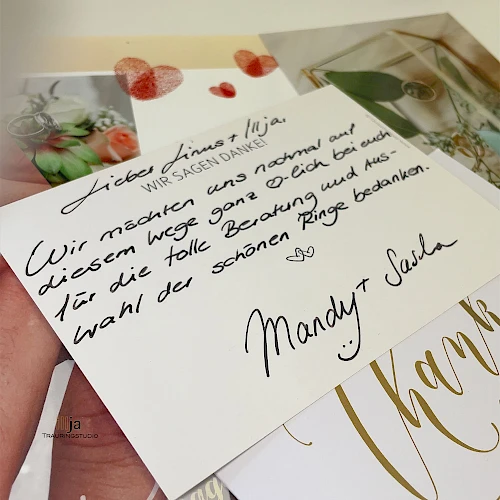 Lieber Linus + Illja,
WIR SAGEN DANKE!
Wir möchten uns nochmal auf
diesem Wege ganz ♡-lich bei euch
für die tolle Beratung und Aus-
wahl der schönen Ringe bedanken.
Mandy + Sascha
Thank
Illja
TRAURINGSTUDIO